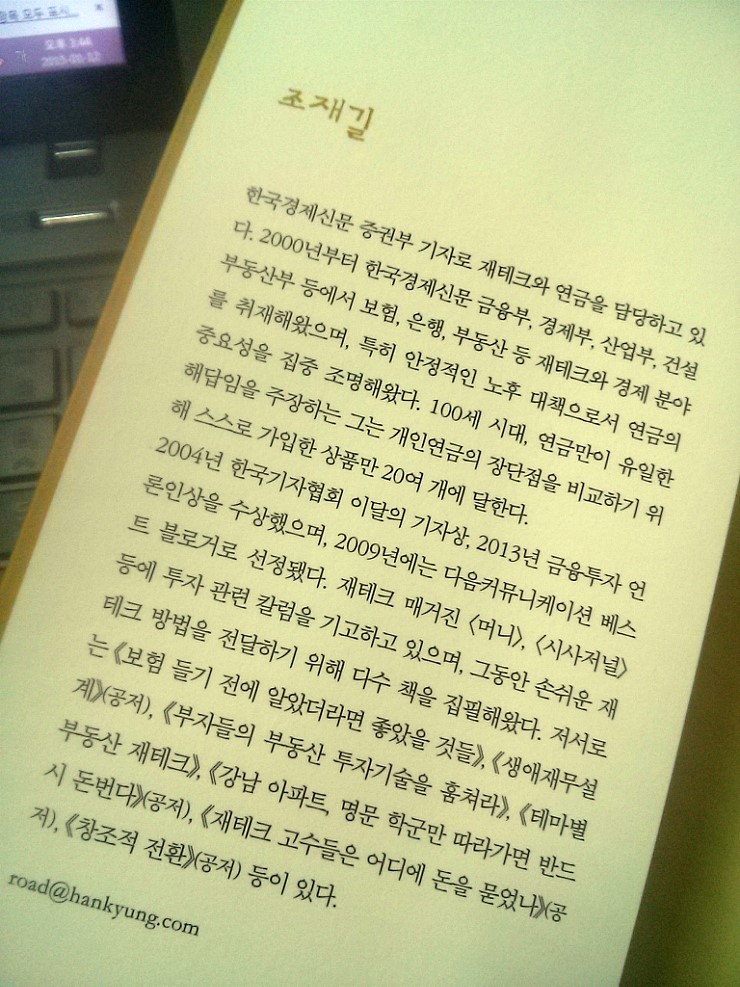 모두 표시...
가
오후 3:44
2015-01-12
조재길
한국경제신문 증권부 기자로 재테크와 연금을 담당하고 있
다. 2000년부터 한국경제신문 금융부, 경제부, 산업부, 건설
부동산부 등에서 보험, 은행, 부동산 등 재테크와 경제 분야
를 취재해왔으며, 특히 안정적인 노후 대책으로서 연금의
중요성을 집중 조명해왔다. 100세 시대, 연금만이 유일한
해답임을 주장하는 그는 개인연금의 장단점을 비교하기 위
해 스스로 가입한 상품만 20여 개에 달한다.
2004년 한국기자협회 이달의 기자상, 2013년 금융투자 언
론인상을 수상했으며, 2009년에는 다음커뮤니케이션 베스
트 블로거로 선정됐다. 재테크 매거진 〈머니〉, 〈시사저널〉
등에 투자 관련 칼럼을 기고하고 있으며, 그동안 손쉬운 재
테크 방법을 전달하기 위해 다수 책을 집필해왔다. 저서로
는 《보험 들기 전에 알았더라면 좋았을 것들》, 《생애재무설
계》(공저), 《부자들의 부동산 투자기술을 훔쳐라》, 《테마별
부동산 재테크》, 《강남 아파트, 명문 학군만 따라가면 반드
시 돈번다》(공저), 《재테크 고수들은 어디에 돈을 묻었나》(공
저), 《창조적 전환》(공저) 등이 있다.
road@hankyung.com